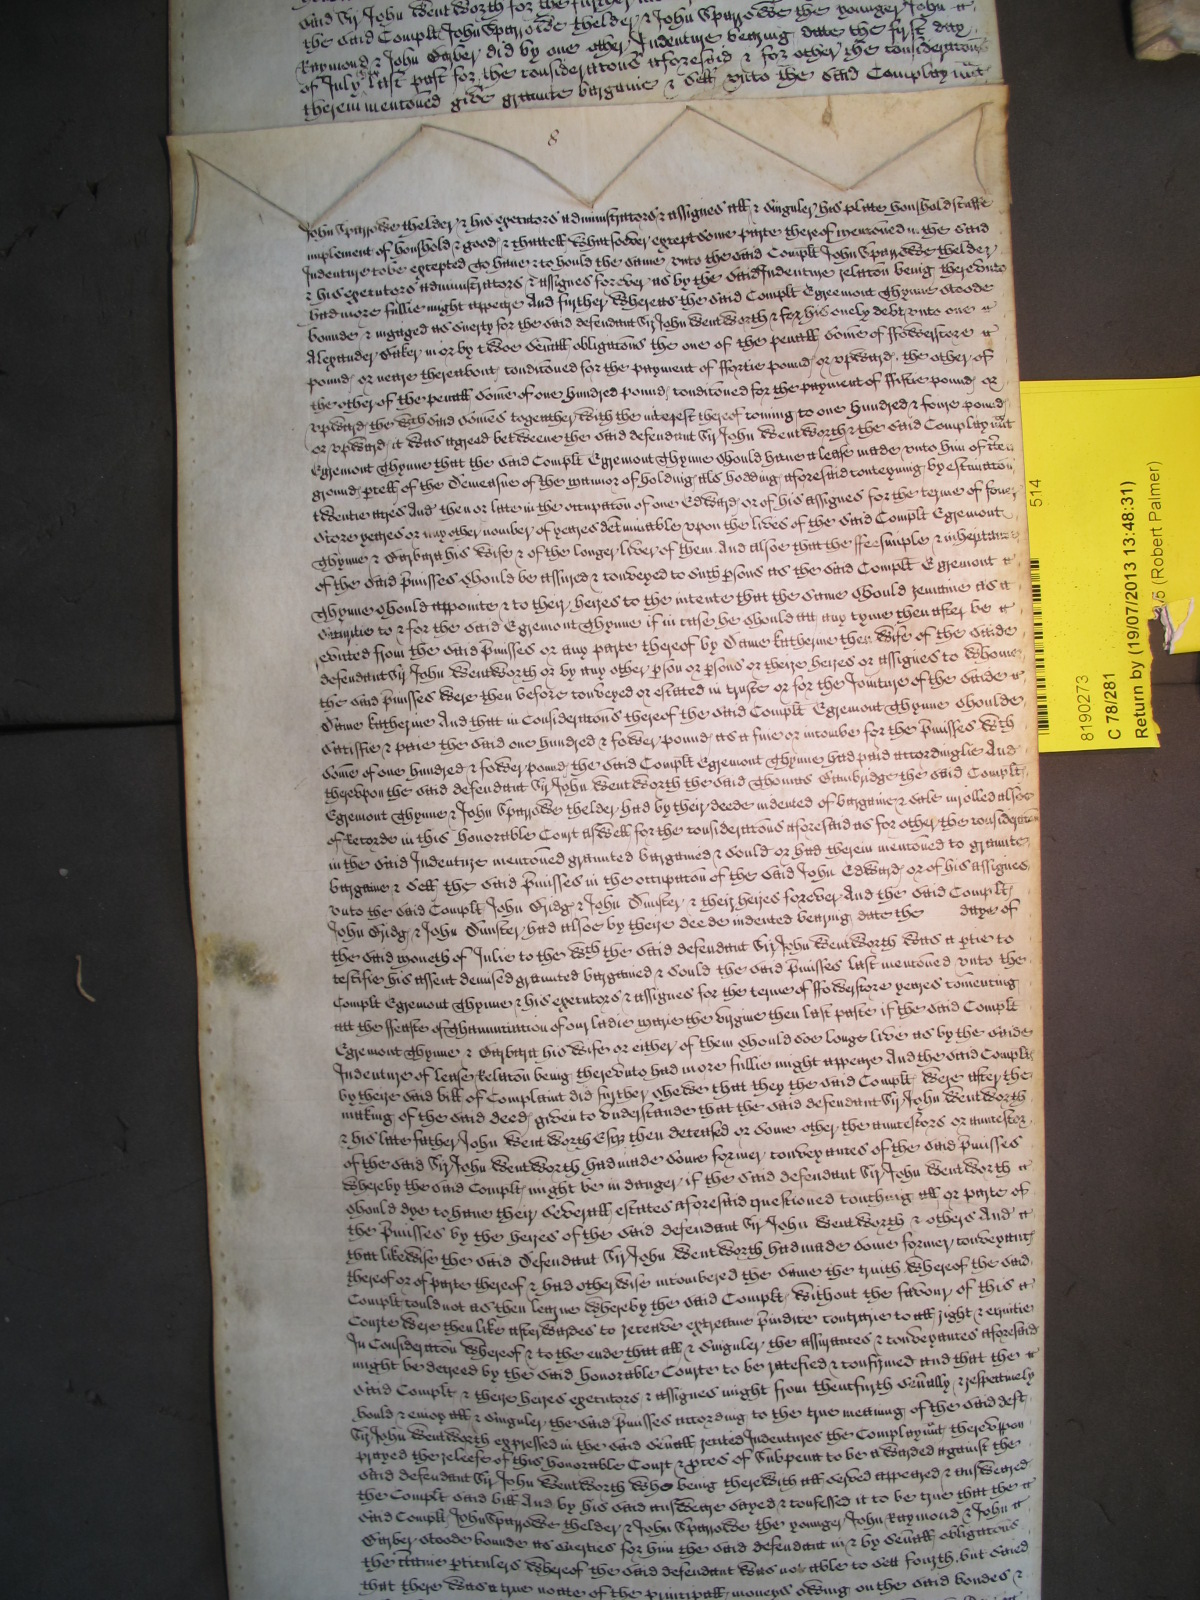 said Sir John Wentworth for the further
the said Complt John Sparrowe thelder & John Sparrowe the younger John
Raymond & John Barber did by one other Indenture bearing date the first day
of July last past for the consideratons aforesaid & for other the consideratons
therein mentoned give graunte bargaine & sell unto the said Complaynnt
8
John Sparrowe thelder & his executors administrators & assignes all & singuler his plate houshold stuffe
implement of houshold & good & chattell whatsoever except some parte thereof mentoned in the said
Indenture to be excepted To have & to hould the same unto the said Complt John Sparrowe thelder
& his executors administrators & assignes forever as by the said Indenture relaton being thereunto
had more fullie might appeare And further whereas the said Complt Egremont Thynne stoode
bounde & ingaged as suerty for the said defendant Sir John Wentworth & for his onely debt unto one
Alexander Baker in or by twoe severall obligatons the one of the penall some of ffowerscore
pound or neare thereabout conditoned for the payment of ffortie pound or upward the other of
the other of the penall some of one hundred pound conditoned for the payment of ffiftie pound or
upward the wch said somes together with the interest thereof coming to one hundred & foure pound
or upward it was agreed betweene the said defendant Sir John Wentworth & the said Complaynnt
Egremont Thynne that the said Complt Egremont Thynne should have a lease made unto him of
ground pcell of the demeasne of the mannor of holding als hodding aforesaid conteyning by estimaton
twentie acres And then or late in the occupaton of one Edward or of his assignes for the terme of foure
score yeares or any other number of yeares determinable upon the lives of the said Complt Egremont
Thynne & Barbara his wife & of the longer liver of them And alsoe that the ffee simple & inheritance
of the said pmisses should be assured & conveyed to such psons as the said Complt Egremont
Thynne should appointe & to their heires to the intente that the same should remaine as a
to & for the said Egremont Thynne if in case he should att any tyme then after be
evicted from the said pmisses or any parte thereof by Dame Katherine then wife of the saide
defendant Sir John Wentworth or by any other pson or psons or theire heires or assignes to whome
the said pmisses were then before conveyed or estated in truste or for the Joincture of the saide
Dame Katherine And that in Consideratons thereof the said Complt Egremont Thynne should
satisfie & paie the said one hundred & fower pound as a fine or income for the pmisses wch
some of one hundred & fower pound the said Complt Egremont Thynne had paid accordinglie And
thereupon the said defendant Sir John Wentworth the said Thomas Cambridge the said Complt
Egremont Thynne & John Sparrowe thelder had by their deede indented of bargaine & sale inrolled alsoe
of Recorde in this honorable Court aswell for the consideratons aforesaid as for other the consideratons
in the said Indenture mentoned graunted bargained & sould or had therein mentoned to graunte
bargaine & sell the said pmisses in the occupaton of the said John Edward or of his assignes
unto the said Complt John & John & their heires forever And the said Complt
John & John had alsoe by theire deede indented bearing date the daye of
the said moneth of Julie to the wch the said defendant Sir John Wentworth was a ptie to
testifie his assent demised graunted bargained & sould the said pmisses last mentoned unto the
Complt Egremont Thynne & his executors & assignes for the terme of ffowerscore yeares comencing
att the ffeaste of Thannuntiation of our ladie marie the virgine then last paste if the said Complt
Egremont Thynne & Barbara his wife or either of them should soe longe live as by the saide
Indenture of lease Relaton being thereunto had more fullie might appeare And the said Complts
by theire said bill of Complaint did further shewe that they the said Complt were after the
making of the said deed given to understande that the said defendant Sir John Wentworth
& his late father John Wentworth Esqr then deceased or some other the auncestors or auncestor
of the said Sir John Wentworth had made some former conveyances of the said pmisses
whereby the said Complt might be in danger if the said defendant Sir John Wentworth
should dye to have their severall estates aforesaid questioned touching all or parte of
the pmisses by the heires of the said defendant Sir John Wentworth & others And
that likewise the said Defendant Sir John Wentworth had made some former conveyance
thereof or of parte thereof & had otherwise incombered the same the truth whereof the said
Complt could not as then learne whereby the said Complt without the favour of this
Courte were then like afterwardes to receave extreame piudice contrarie to all right & equitie
In Consideraton whereof & to the ende that all & singuler the assurances & conveyances aforesaid
might be decreed by the said honorable Courte to be ratefied & confirmed and that the
said Complt & theire heires executors & assignes might from thenceforth severally & respectively
hould & enioy all & singuler the said pmisses according to the true meaning of the said deft
Sir John Wentworth expressed in the said severall recited Indentures the Complaynnt thereuppon
prayed the releefe of this honorable Court & pces of Subpena to be awarded against the
said defendant Sir John Wentworth who being therewith all served appeared & answeared
the Complt said bill And by his said answeare sayed & confessed it to be true that the
said Complt John Sparrowe thelder & John Sparrowe the younger John Raymond & John
Barber stoode bounde as suerties for him the said defendant in & by severall obligatons
the pticulers whereof the said defendant was not able to sett fourth but said
that there was a true noate of the principall moneys owing on the said bondes &
514
8190273
C 78/281
Return by (19/07/2013 13:48:31)
(Robert Palmer)